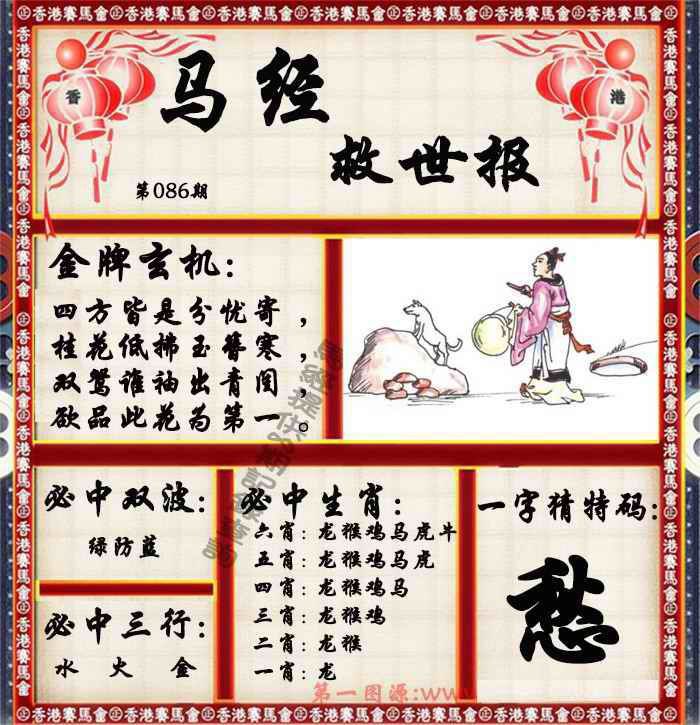 香港賽馬會
香
港
马经
救世报
第086期
金牌玄机：
四方皆是分忧寄，
桂花低拂玉簪寒，
双鸳谁袖出青闺，
欲品此花为第一。
必中双波：
绿防蓝
必中三行：
水 火 金
必中生肖：
六肖：龙猴鸡马虎牛
五肖：龙猴鸡马虎
四肖：龙猴鸡马
三肖：龙猴鸡
二肖：龙猴
一肖：龙
一字猜特码：
愁
第一图源:www